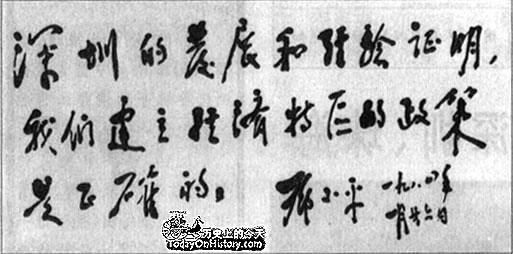 深圳的發展和经验证明，
我们建立经济特区的政策
是正確的。 邓小平
一九八四年
一月廿六日
历史上的今天
TodayOnHistory.com